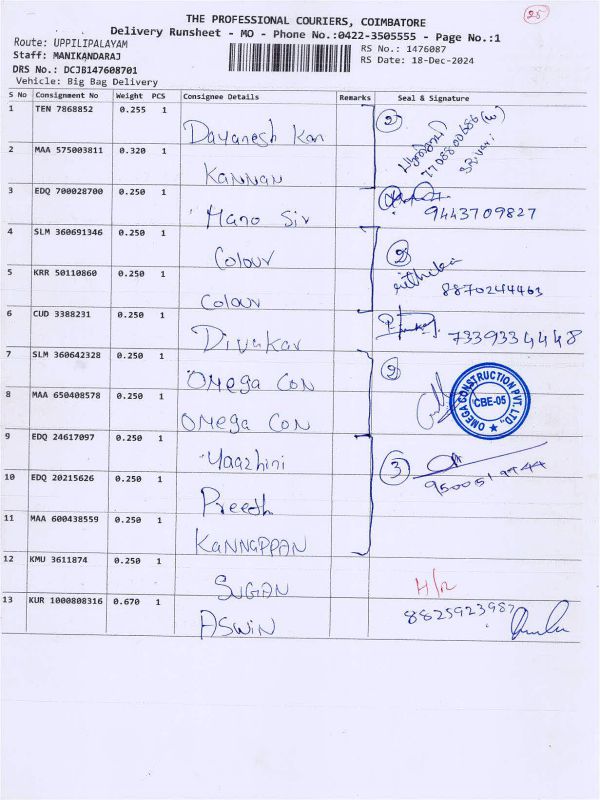 25
THE PROFESSIONAL COURIERS, COIMBATORE
Delivery Runsheet - MO - Phone No.:0422-3505555 - Page No.:1
Route: UPPILIPALAYAM
Staff: MANIKANDARAJ
DRS No.: DCJB147608701
Vehicle: Big Bag Delivery
RS No.: 1476087
RS Date: 18-Dec-2024
S No Consignment No Weight PCS Consignee Details Remarks Seal & Signature
1 TEN 7868852 0.255 1 Dayanesh Kan
2
7708800686 (w)
2 MAA 575003811 0.320 1 KANNAN
3 EDQ 700028700 0.250 1 Mano Sir
9443709827
4 SLM 360691346 0.250 1 Colour
2
8870244463
5 KRR 50110860 0.250 1 Colour
6 CUD 3388231 0.250 1 Divakar
7339334448
7 SLM 360642328 0.250 1 OMega CON
2
OMEGA CONSTRUCTION PVT. LTD.,
CBE-05
8 MAA 650408578 0.250 1 OMega CON
9 EDQ 24617097 0.250 1 Yaazhini
3
10 EDQ 20215626 0.250 1 Preeth
11 MAA 600438559 0.250 1 KANNAPPAN
12 KMU 3611874 0.250 1 SUGAN
13 KUR 1000808316 0.670 1 ASWIN
8825923987